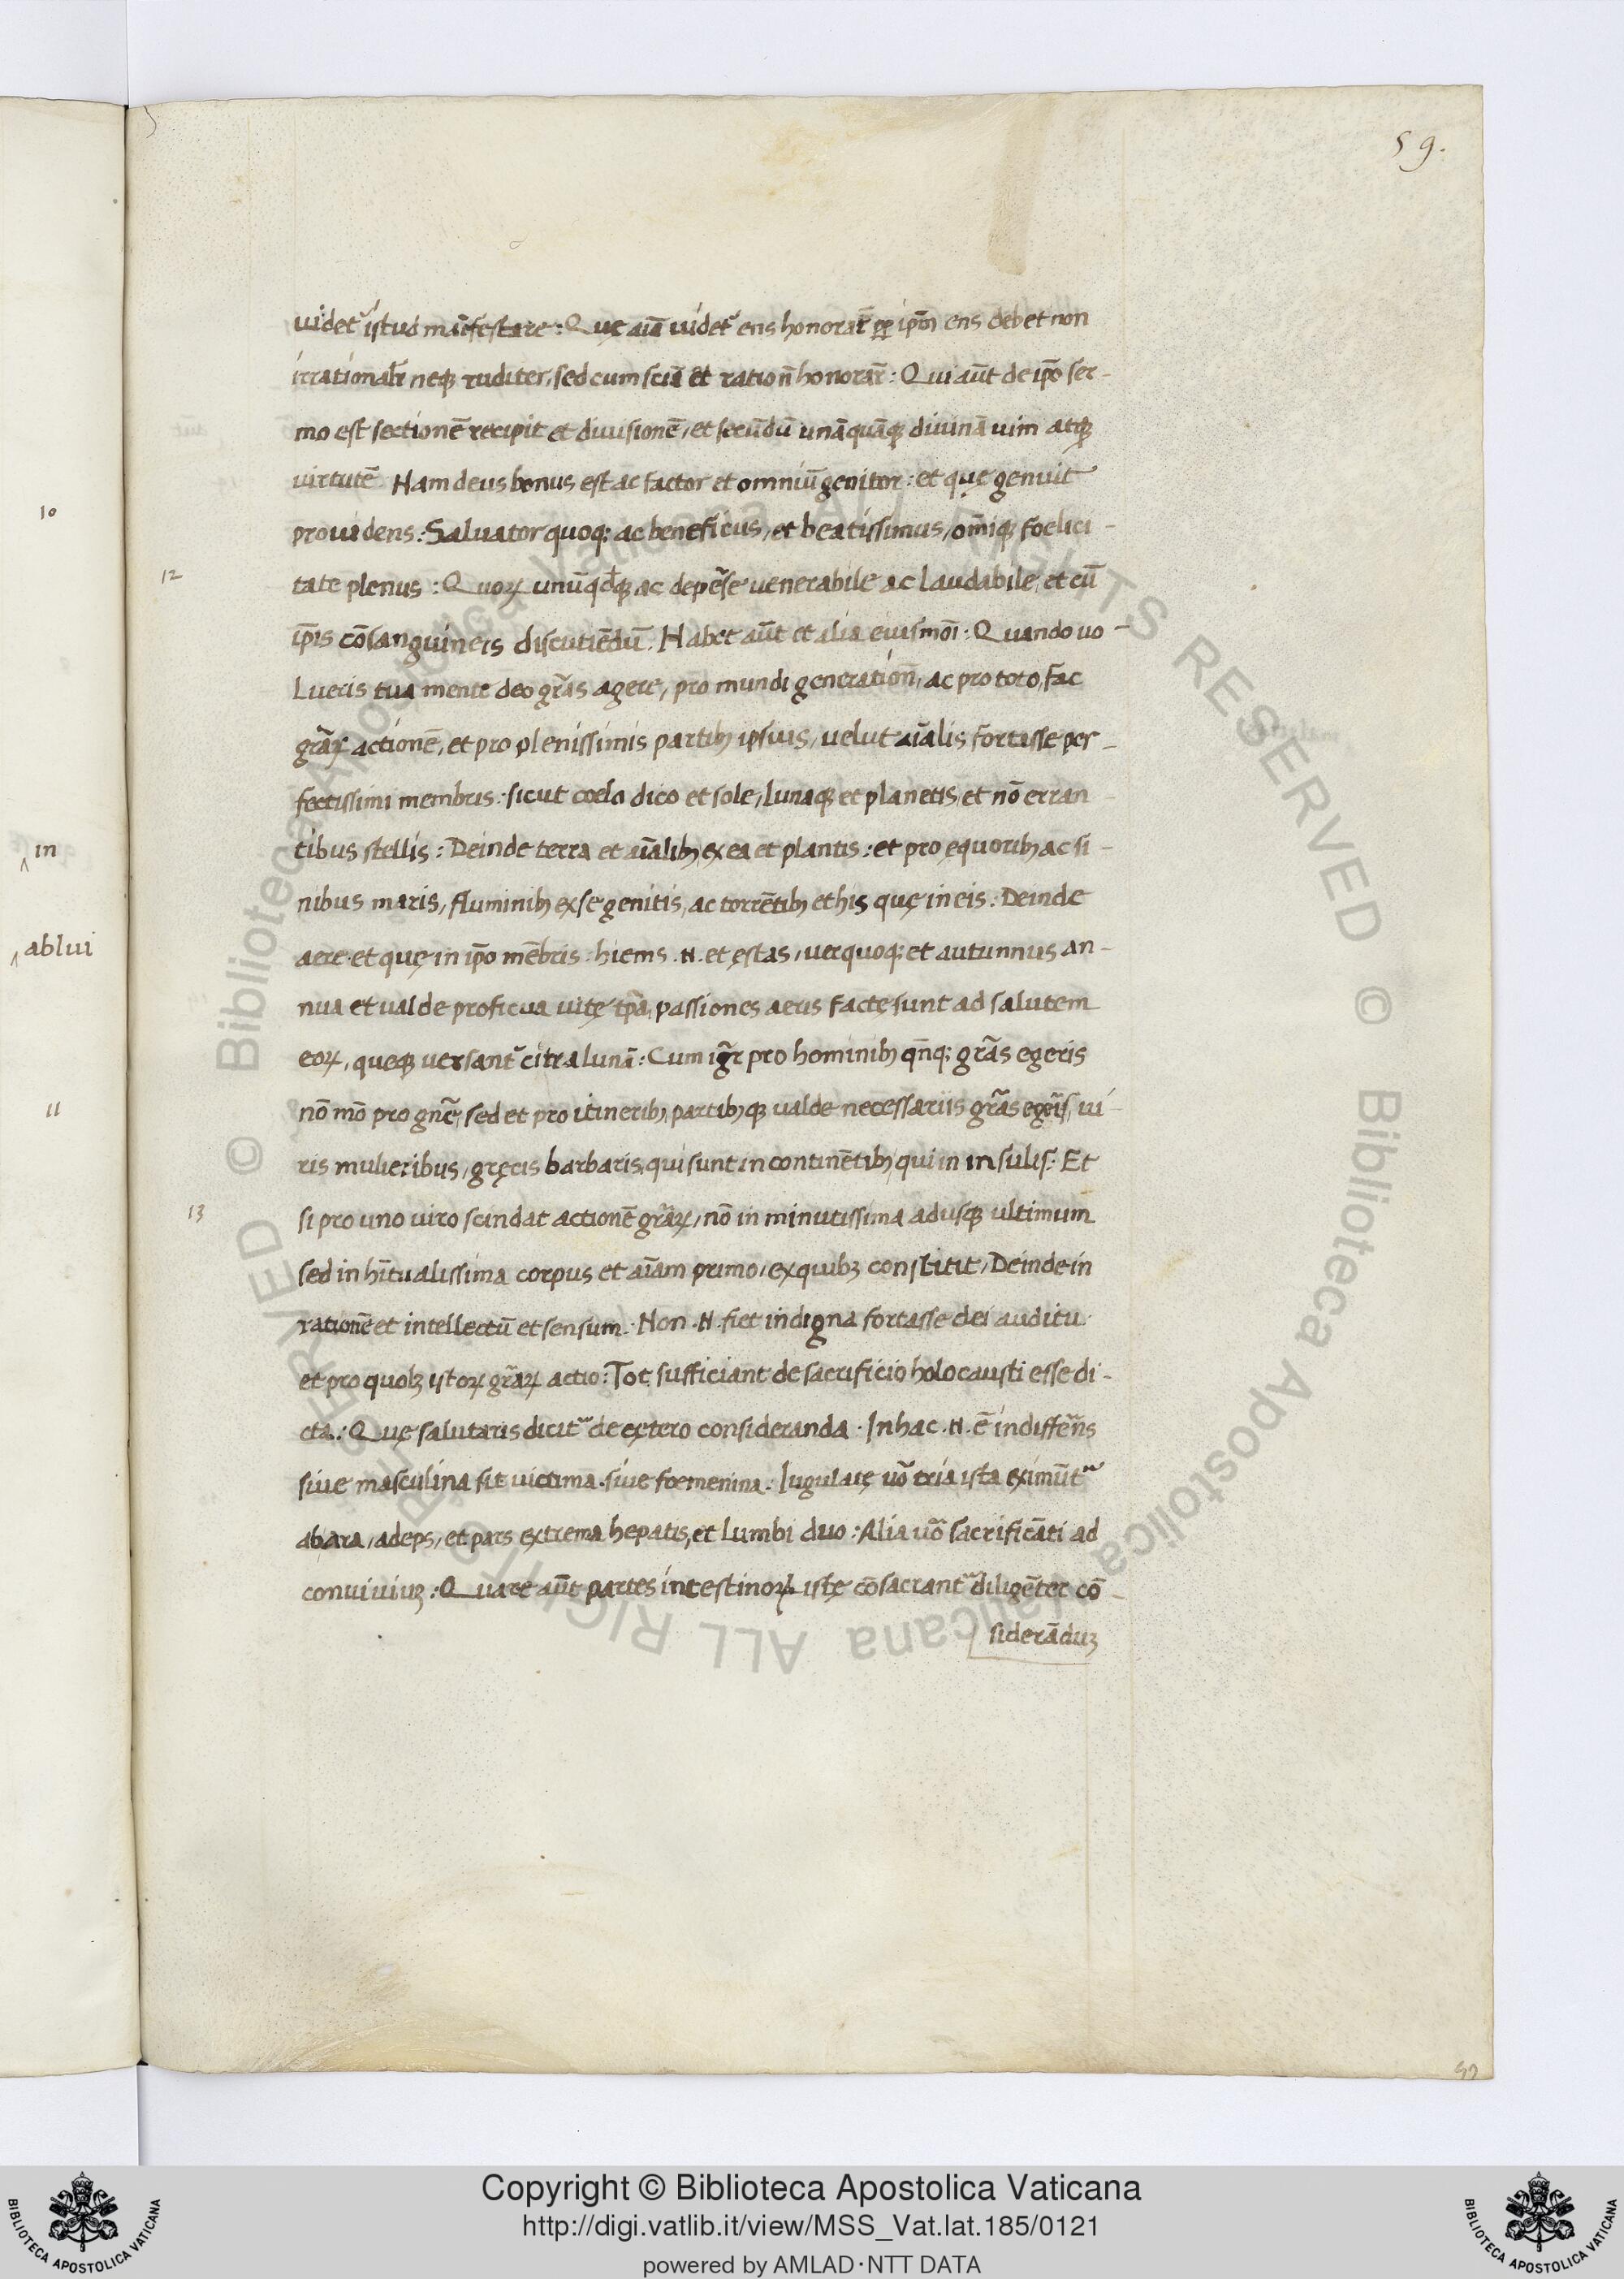 59.
uidet᷑ istud mãifestare: Quę aiã uidet᷑ ens honorar̃ ꝑ ip̃m ens debet non
irrational̃r neqꝫ ruditer, sed cum sciã et ration̄ honorar̃: Qui aũt de ip̃o ser-
mo est sectionẽ recipit et diuisionẽ, et secũdũ unãquãqꝫ diuinã uim atqꝫ
virtutẽ Nam deus bonus est ac factor et omniũ genitor: et quę genuit
prouidens: Saluator quoq; ac beneficus, et beatissimus, om̃iqꝫ foelici-
12
tate plenus: Quoꝝ unũqdqꝫ ac depẽse uenerabile ac laudabile, et cũ
ip̃is cõsanguineis discutiẽdũ. Habet aũt et alia eiusmõi: Quando uo-
lueris tua mente deo gr̃as agere, pro mundi generation̄, ac pro toto, fac
gr̃aꝝ actionẽ, et pro plenissimis partibꝫ ipsius, uelut aĩalis fortasse per-
fectissimi membris: sicut coelo dico et sole, lunaqꝫ et planetis, et nõ erran-
tibus stellis: Deinde terra et aĩalibꝫ, ex ea et plantis: et pro equoribꝫ ac si-
nibus maris, fluminibꝫ ex se genitis, ac torrẽtibꝫ et his quę in eis: Deinde
aere et quę in ip̃o mẽbris: hiems .N. et ęstas, uer quoq; et autunnus an-
nua et ualde proficua uitę tp̃a, passiones aeris factę sunt ad salutem
eoꝝ, queqꝫ uersant᷑ citra lunã: Cum igr̃ pro hominibꝫ qñq; gr̃as egeris
nõ mõ pro gñe, sed et pro itineribꝫ, partibꝫqꝫ ualde necessariis gr̃as egeris, ui-
ris mulieribus, gręcis barbaris, qui sunt in continẽtibꝫ, qui in insulis: Et
13
si pro uno uiro scindat actionẽ gr̃aꝝ, nõ in minutissima adusqꝫ ultimum
sed in hĩtualissima corpus et aĩam primo, ex quibꝫ constitit, Deinde in
rationẽ et intellectũ et sensum. Non .N. fiet indigna fortasse dei auditu
et pro quolꝫ istoꝝ gr̃aꝝ actio: Tot sufficiant de sacrificio holocausti esse di-
cta.: Quę salutaris dicit᷑ de cętero consideranda. In hac .N. ẽ indiffẽns
siue masculina sit uictima. siue foemenina: Iugulatę uõ tria ista eximũt᷑
ab ara, adeps, et pars extrema hepatis, et lumbi duo: Alia uõ sacrificãti ad
conuiuiuꝫ: Quare aũt partes intestinoꝝ istę cõsacrant᷑ diligẽter cõ-
siderãduꝫ
10
in
ablui
11
59
Copyright © Biblioteca Apostolica Vaticana
http://digi.vatlib.it/view/MSS_Vat.lat.185/0121
powered by AMLAD·NTT DATA
BIBLIOTECA APOSTOLICA VATICANA
BIBLIOTECA APOSTOLICA VATICANA
© Biblioteca Apostolica Vaticana ALL RIGHTS RESERVED
© Biblioteca Apostolica Vaticana ALL RIGHTS RESERVED